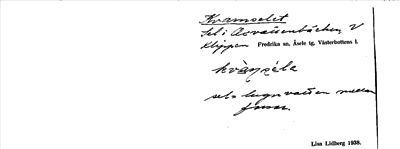 Kvarnselet
Sel i Osvattenbäcken, V
Klippen Fredrika sn, Åsele tg, Västerbottens l.
kvàṇsèle
sel = lugnvatten mellan
forsar.
Lisa Lidberg 1938.